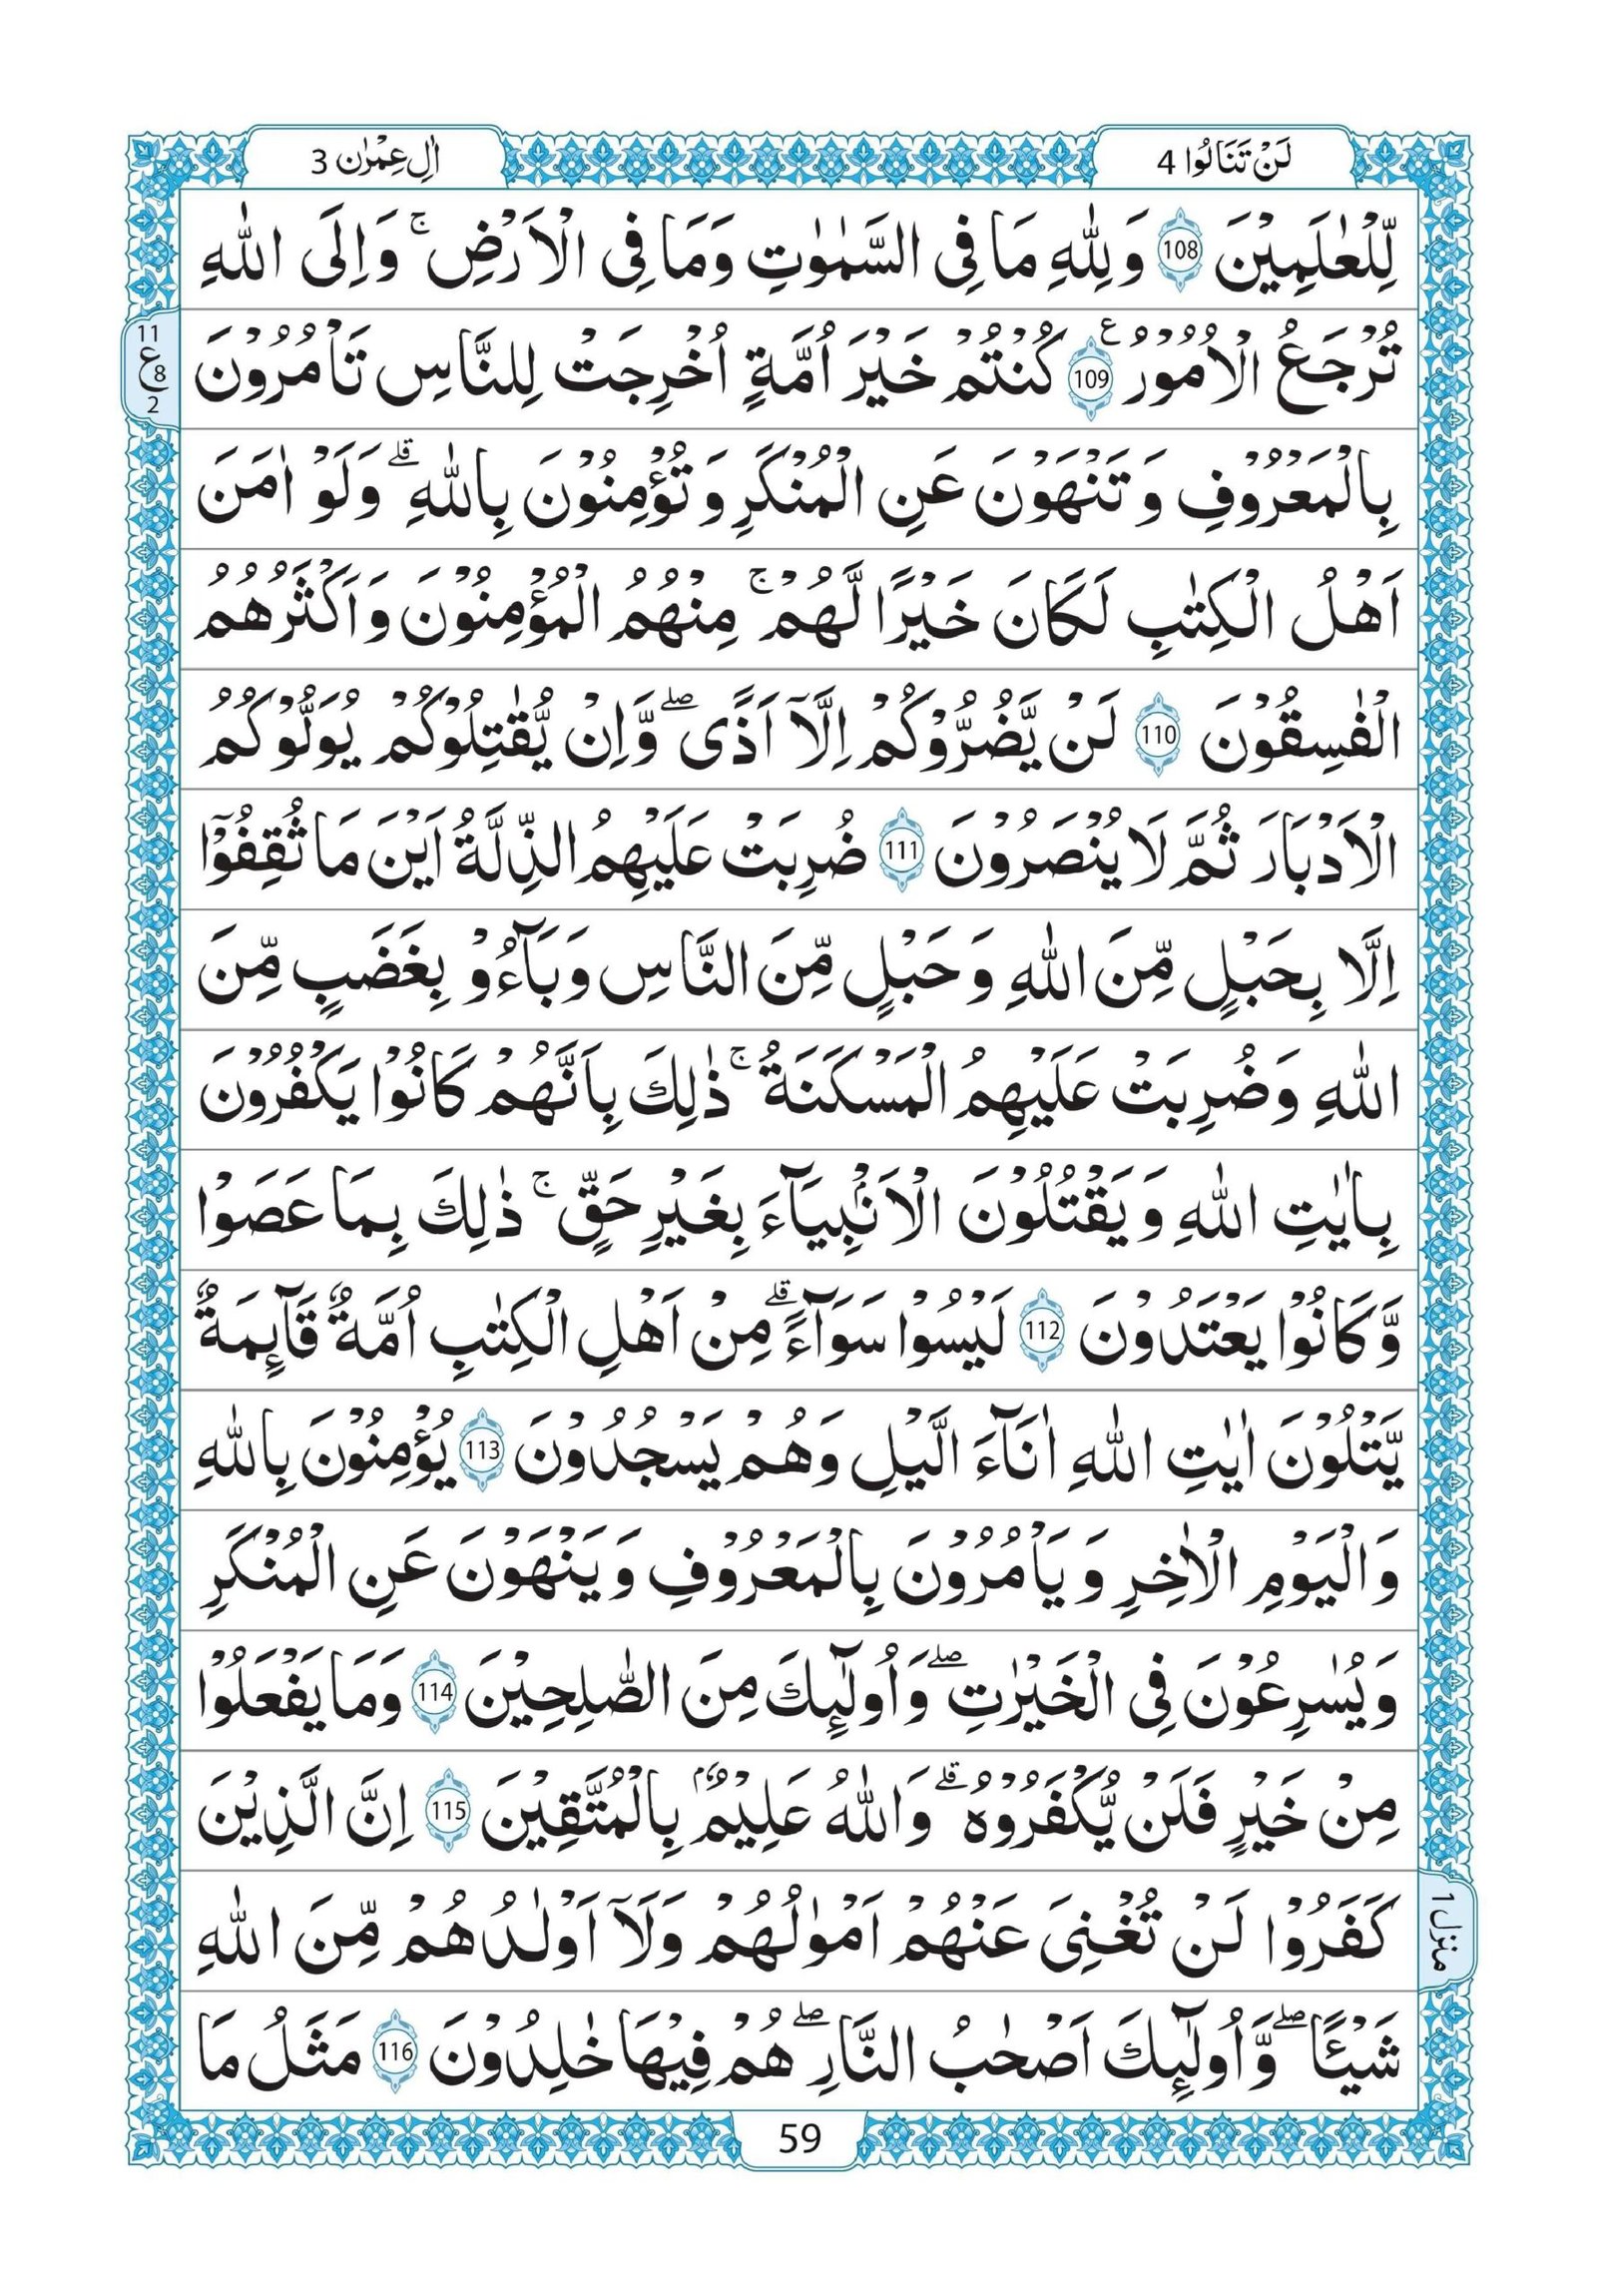 لَنْ تَنَالُوا 4
اٰلِ عِمْرٰن 3
لِّلْعٰلَمِيْنَ 108 وَلِلّٰهِ مَا فِى السَّمٰوٰتِ وَمَا فِى الْاَرْضِ ۚ وَاِلَى اللّٰهِ
تُرْجَعُ الْاُمُوْرُ 109 ع كُنْتُمْ خَيْرَ اُمَّةٍ اُخْرِجَتْ لِلنَّاسِ تَاْمُرُوْنَ
11
ع 8
2
بِالْمَعْرُوْفِ وَ تَنْهَوْنَ عَنِ الْمُنْكَرِ وَ تُؤْمِنُوْنَ بِاللّٰهِ ۗ وَلَوْ اٰمَنَ
اَهْلُ الْكِتٰبِ لَكَانَ خَيْرًا لَّهُمْ ۚ مِنْهُمُ الْمُؤْمِنُوْنَ وَاَكْثَرُهُمُ
الْفٰسِقُوْنَ 110 لَنْ يَّضُرُّوْكُمْ اِلَّاۤ اَذًى ۖ وَّاِنْ يُّقٰتِلُوْكُمْ يُوَلُّوْكُمُ
الْاَدْبَارَ ثُمَّ لَا يُنْصَرُوْنَ 111 ضُرِبَتْ عَلَيْهِمُ الذِّلَّةُ اَيْنَ مَا ثُقِفُوْٓا
اِلَّا بِحَبْلٍ مِّنَ اللّٰهِ وَ حَبْلٍ مِّنَ النَّاسِ وَبَآءُوْ بِغَضَبٍ مِّنَ
اللّٰهِ وَ ضُرِبَتْ عَلَيْهِمُ الْمَسْكَنَةُ ۚ ذٰلِكَ بِاَنَّهُمْ كَانُوْا يَكْفُرُوْنَ
بِاٰيٰتِ اللّٰهِ وَ يَقْتُلُوْنَ الْاَنْۢبِيَآءَ بِغَيْرِ حَقٍّ ۚ ذٰلِكَ بِمَا عَصَوْا
وَّكَانُوْا يَعْتَدُوْنَ 112 لَيْسُوْا سَوَآءً ۗ مِنْ اَهْلِ الْكِتٰبِ اُمَّةٌ قَآئِمَةٌ
يَّتْلُوْنَ اٰيٰتِ اللّٰهِ اٰنَآءَ الَّيْلِ وَهُمْ يَسْجُدُوْنَ 113 يُؤْمِنُوْنَ بِاللّٰهِ
وَالْيَوْمِ الْاٰخِرِ وَ يَاْمُرُوْنَ بِالْمَعْرُوْفِ وَ يَنْهَوْنَ عَنِ الْمُنْكَرِ
وَيُسٰرِعُوْنَ فِى الْخَيْرٰتِ ۖ وَاُولٰٓئِكَ مِنَ الصّٰلِحِيْنَ 114 وَمَا يَفْعَلُوْا
مِنْ خَيْرٍ فَلَنْ يُّكْفَرُوْهُ ۗ وَاللّٰهُ عَلِيْمٌۢ بِالْمُتَّقِيْنَ 115 اِنَّ الَّذِيْنَ
كَفَرُوْا لَنْ تُغْنِىَ عَنْهُمْ اَمْوٰلُهُمْ وَلَاۤ اَوْلٰدُهُمْ مِّنَ اللّٰهِ
منزل 1
شَيْـًٔا ۖ وَّاُولٰٓئِكَ اَصْحٰبُ النَّارِ ۖ هُمْ فِيْهَا خٰلِدُوْنَ 116 مَثَلُ مَا
59